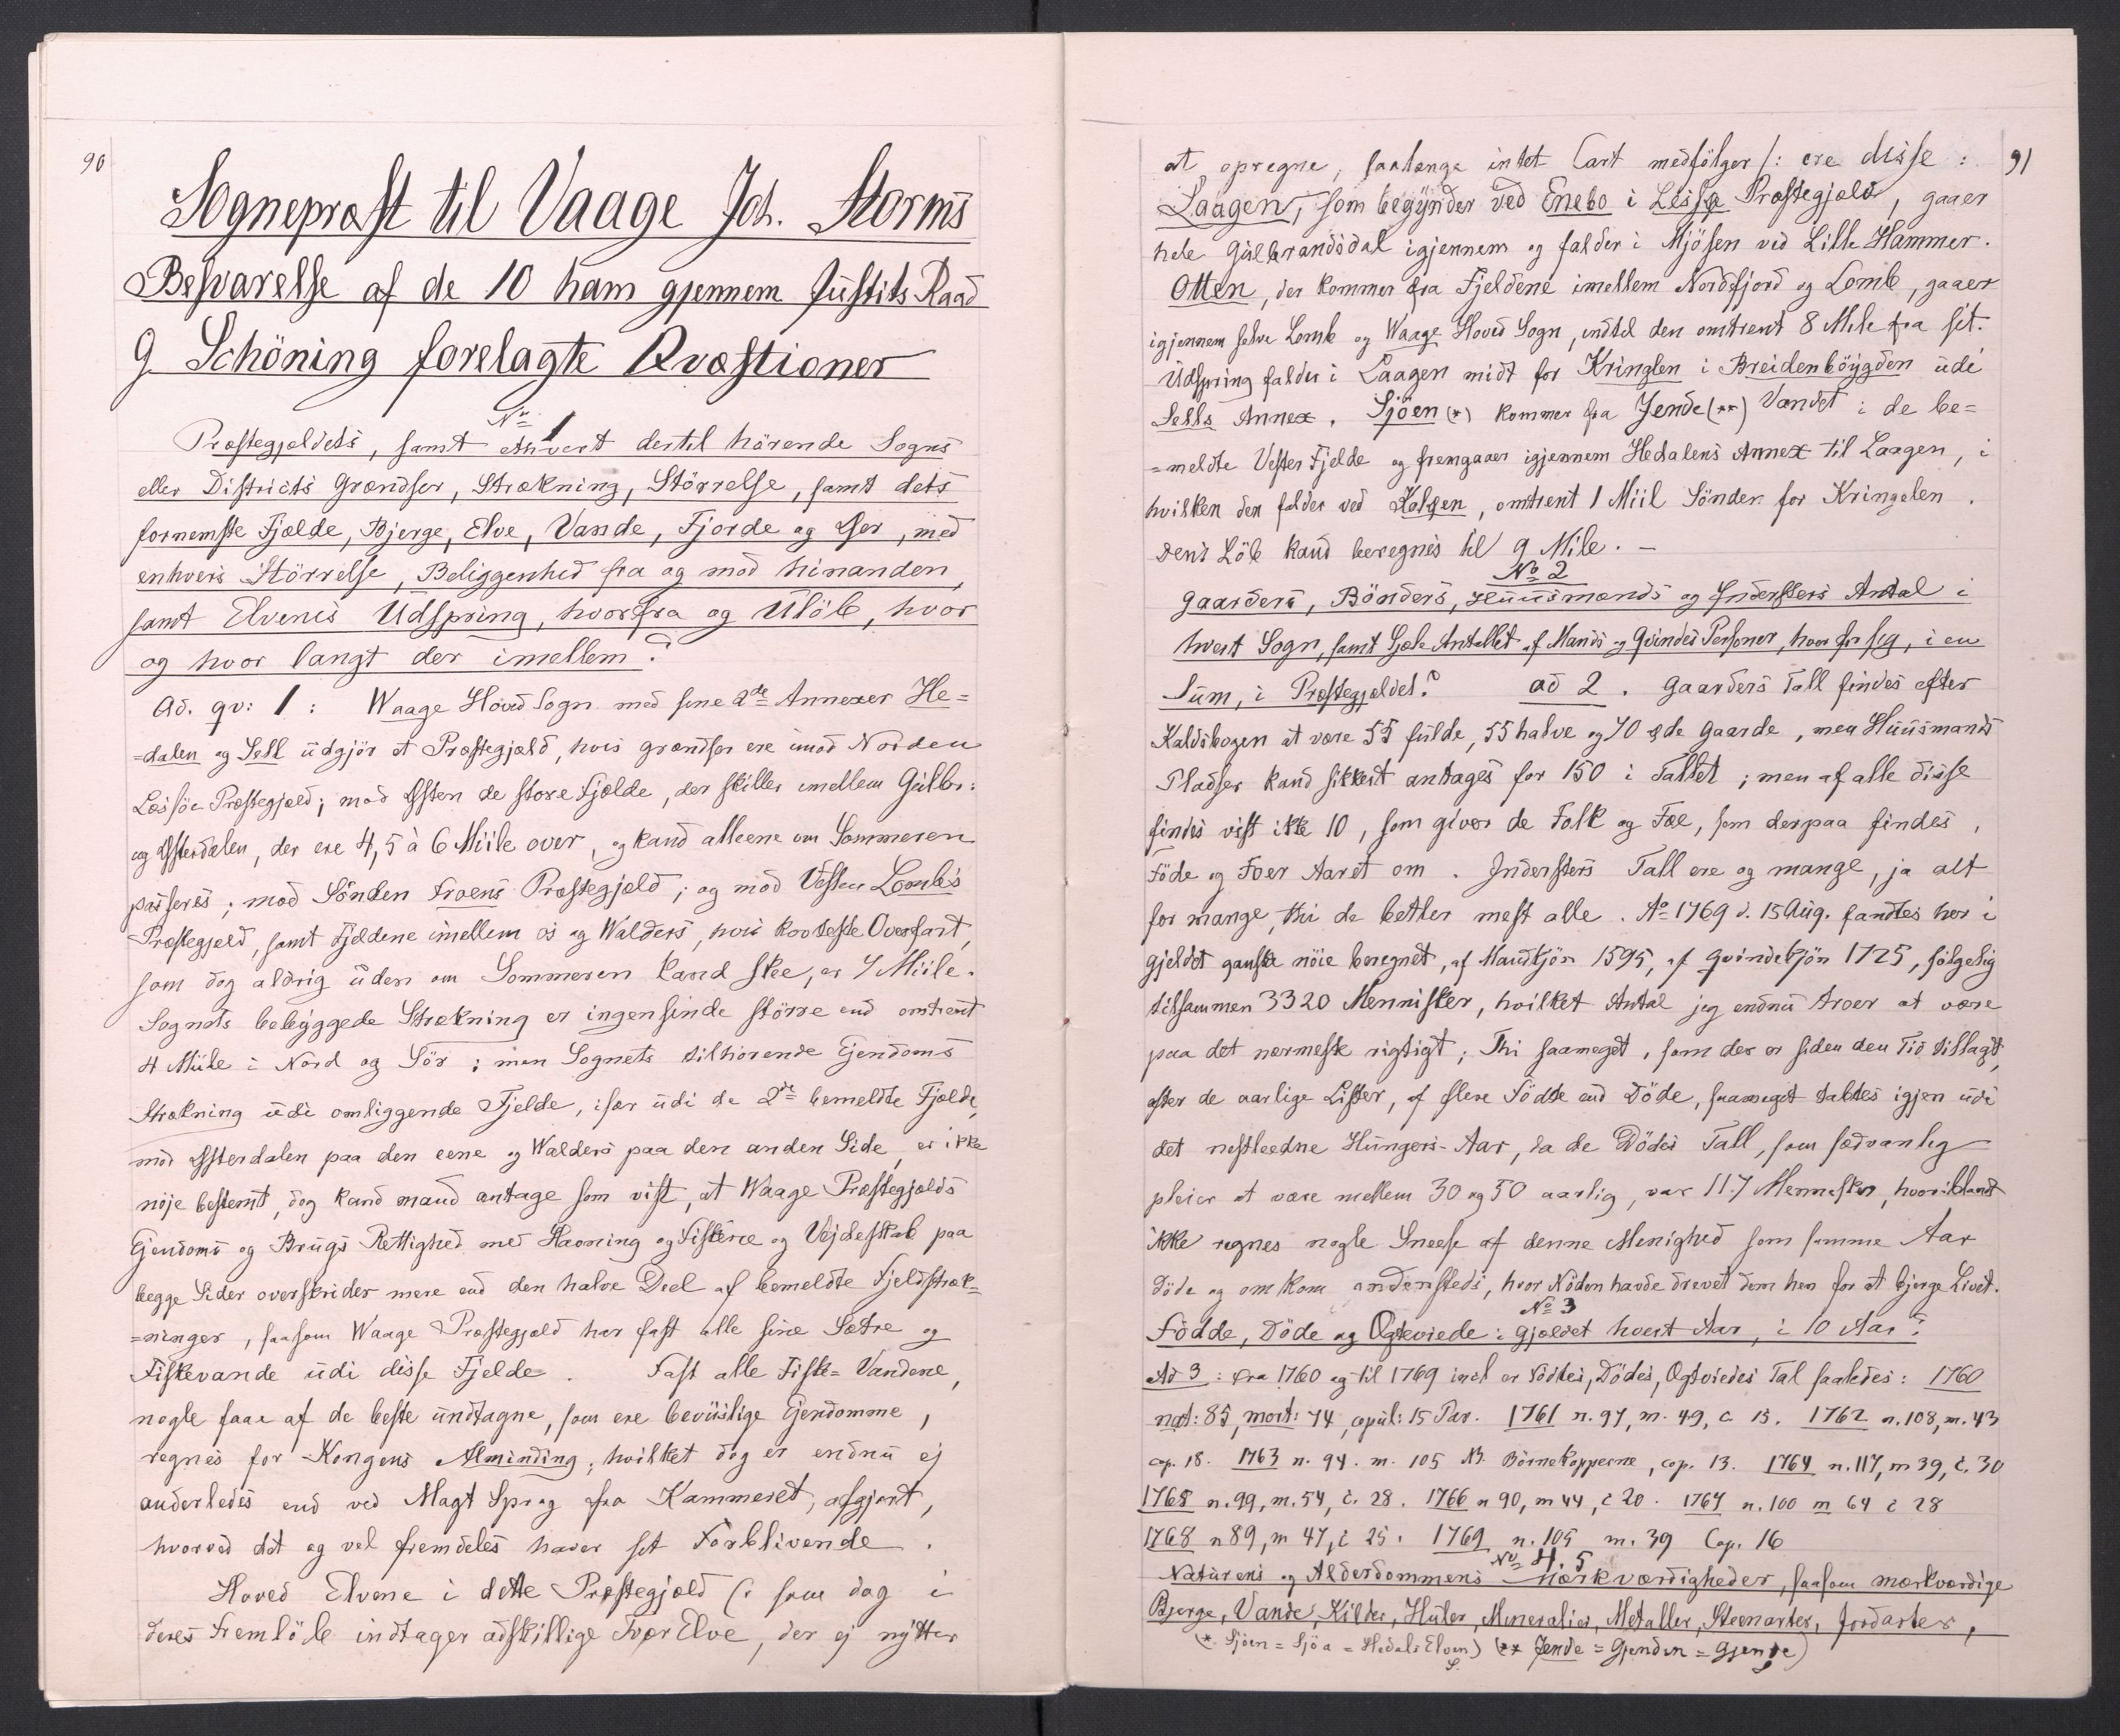 90
Sognepræst til Vaage Joh. Storms
Besvarelse af de 10 ham gjennem Justits Raad
G Schöning forelagte Qvæstioner
No 1
Præstegjeldets, samt ethvert dertil hörende Sogns
eller Districts Grændser, Strækning, Störrelse, samt dets
fornemste Fjælde, Bjerge, Elve, Vande, Fjorde og Öer, med
enhvers Störrelse, Beliggenhed fra og mod hinanden,
samt Elvenes Udspring, hvorfra og Ulöb, hvor
og hvor langt der imellem?
Ad. qv: 1: Waage Hoved Sogn med sine 2de Annexer He=
=dalen og Sell udgjör et Præstegjeld, hvis grændser ere imod Norden
Lessöe Præstegjeld; mod Østen de store Fjælde, der skiller imellem Gulbr:
og Østerdalen, der ere 4, 5 à 6 Miile over, og kand alleene om Sommeren
passeres; mod Sönden Froens Præstegjeld; og mod Vesten Lombs
Præstegjeld, samt Fjeldene imellem os og Walders, hvis korteste Overfart,
som dog aldrig uden om Sommeren kand skee, er 7 Miile.
Sognets bebyggede Strækning er ingensinde större end omtrent
4 Miile i Nord og Sör; men Sognets tilhörende Ejendoms
Strækning udi omliggende Fjelde, især udi de 2de bemeldte Fjælde,
mod Østerdalen paa den eene og Walders paa den anden Side, er ikke
nöje bestemt, dog kand mand antage som vist, at Waage Præstegjelds
Ejendoms og Brugs Rettighed med Havning og Fiskerie og Vejdeskab paa
begge Sider overskrider mere end den halve Deel af bemeldte Fjeldstræk=
=ninger, saasom Waage Præstegjeld har fast alle sine Sætre og
Fiskevande udi disse Fjelde. Fast alle Fiske=Vandene,
nogle faae af de beste undtagne, som ere beviislige Ejendomme,
regnes for Kongens Alminding, hvilket dog er endnu ej
anderledes end ved Magt Sprog fra Kammeret, afgjort,
hvorved det og vel fremdeles haver sit Forblivende.
Hoved Elvene i dette Præstegjeld (: som dog i
deres Fremlöb indtager adskillige Tvær Elve, der ej nytter
91
at opregne, saalænge intet Cart medfölger /: ere disse:
Laagen, som begynder ved Enebo i Lessø Præstegjeld, gaaer
hele Gulbrandsdal igjennem og falder i Mjösen ved Lille Hammer.
Otten, der kommer fra Fjeldene imellem Nordfjord og Lomb, gaaer
igjennem selve Lomb og Waage Hoved Sogn, indtil den omtrent 8 Mile fra sit
Udspring falder i Laagen midt for Kringlen i Breidenböygden udi
Sells Annex. Sjöen (*) kommer fra Jende (**) Vandet i de be=
=meldte Vester Fjelde og fremgaaer igjennem Hedalens Annex til Laagen, i
hvilken den falder ved Kolsen, omtrent 1 Miil Sönder for Kringelen.
Dens Löb kand beregnes til 9 Mile. –
No 2
Gaarders, Bönders, Huusmænds og Indersters Antal i
hvert Sogn, samt Sjæle Antallet af Mands og Qvindes Personer, hver for seg, i en
Sum, i Præstegjeldet? ad 2. Gaarders Tall findes efter
Kaldsbogen at være 55 fulde, 55 halve og 70 øde Gaarde, men Huusmands
Pladser kand sikkert antages for 150 i Tallet; men af alle disse
findes vist ikke 10, som giver de Folk og Fæe, som derpaa findes,
Föde og Foer Aaret om. Indersters Tall ere og mange, ja alt
for mange, thi de betler mest alle. Ao 1769 d. 15 Aug. fandtes her i
gjeldet ganske nöie beregnet, af Mandkjön 1595, af Qvindekjön 1725, fölgelig
tilsammen 3320 Mennisker, hvilket Antal jeg endnu troer at være
paa det nærmeste rigtigt; Thi saameget, som der er siden den Tid tillagt,
efter de aarlige Lister, af flere Födte end Döde, saameget tabtes igjen udi
det nestleedne Hungers-Aar, da de Dödes Tall, som sædvanlig
pleier at være mellem 30 og 50 aarlig, var 117 Mennesker, hvoriblandt
ikke regnes nogle Sneese af denne Menighed som samme Aar
döde og omkom andensteds, hvor Nöden havde drevet dem hen for at bjerge Livet.
No 3
Födde, Döde og Ogteviede i Gjældet hvert Aar, i 10 Aar?
Ad 3: Fra 1760 og til 1769 incl er Födtes, Dödes, Ogtviedes Tal saaledes: 1760
nat: 85, mort: 74, copul: 15 Par. 1761 n. 97, m. 49, c. 15. 1762 n. 108, m. 43
cop. 18. 1763 n. 94. m. 105 N. Börnekopperne, cop. 13. 1764 n. 117, m 39, c. 30
1765 n. 99, m. 54, c. 28. 1766 n 90, m 44, c 20. 1767 n. 100 m 64 c 28
1768 n 89, m 47, c 25. 1769 n. 105 m. 39 Cop. 16
No 4. 5
Naturens og Alderdommens Mærkværdigheder, saasom mærkværdige
Bjerge, Vande, Kilder, Huler, Mineralier, Metaller, Steenarter, Jordarter,
(* Sjöen = Sjöa = Hedals Elven) (** Jende = Gjenden = Gjende)
S.